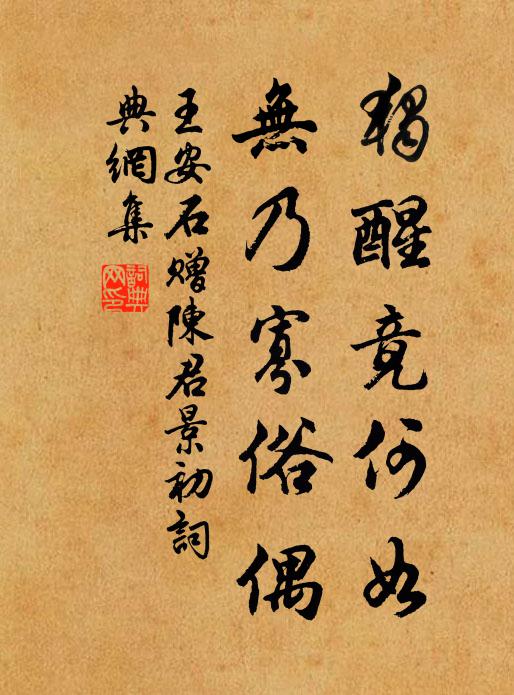 獨醒竟何如
無乃寡俗偶
王安石贈陳君景初詞
典網集
詞典網印